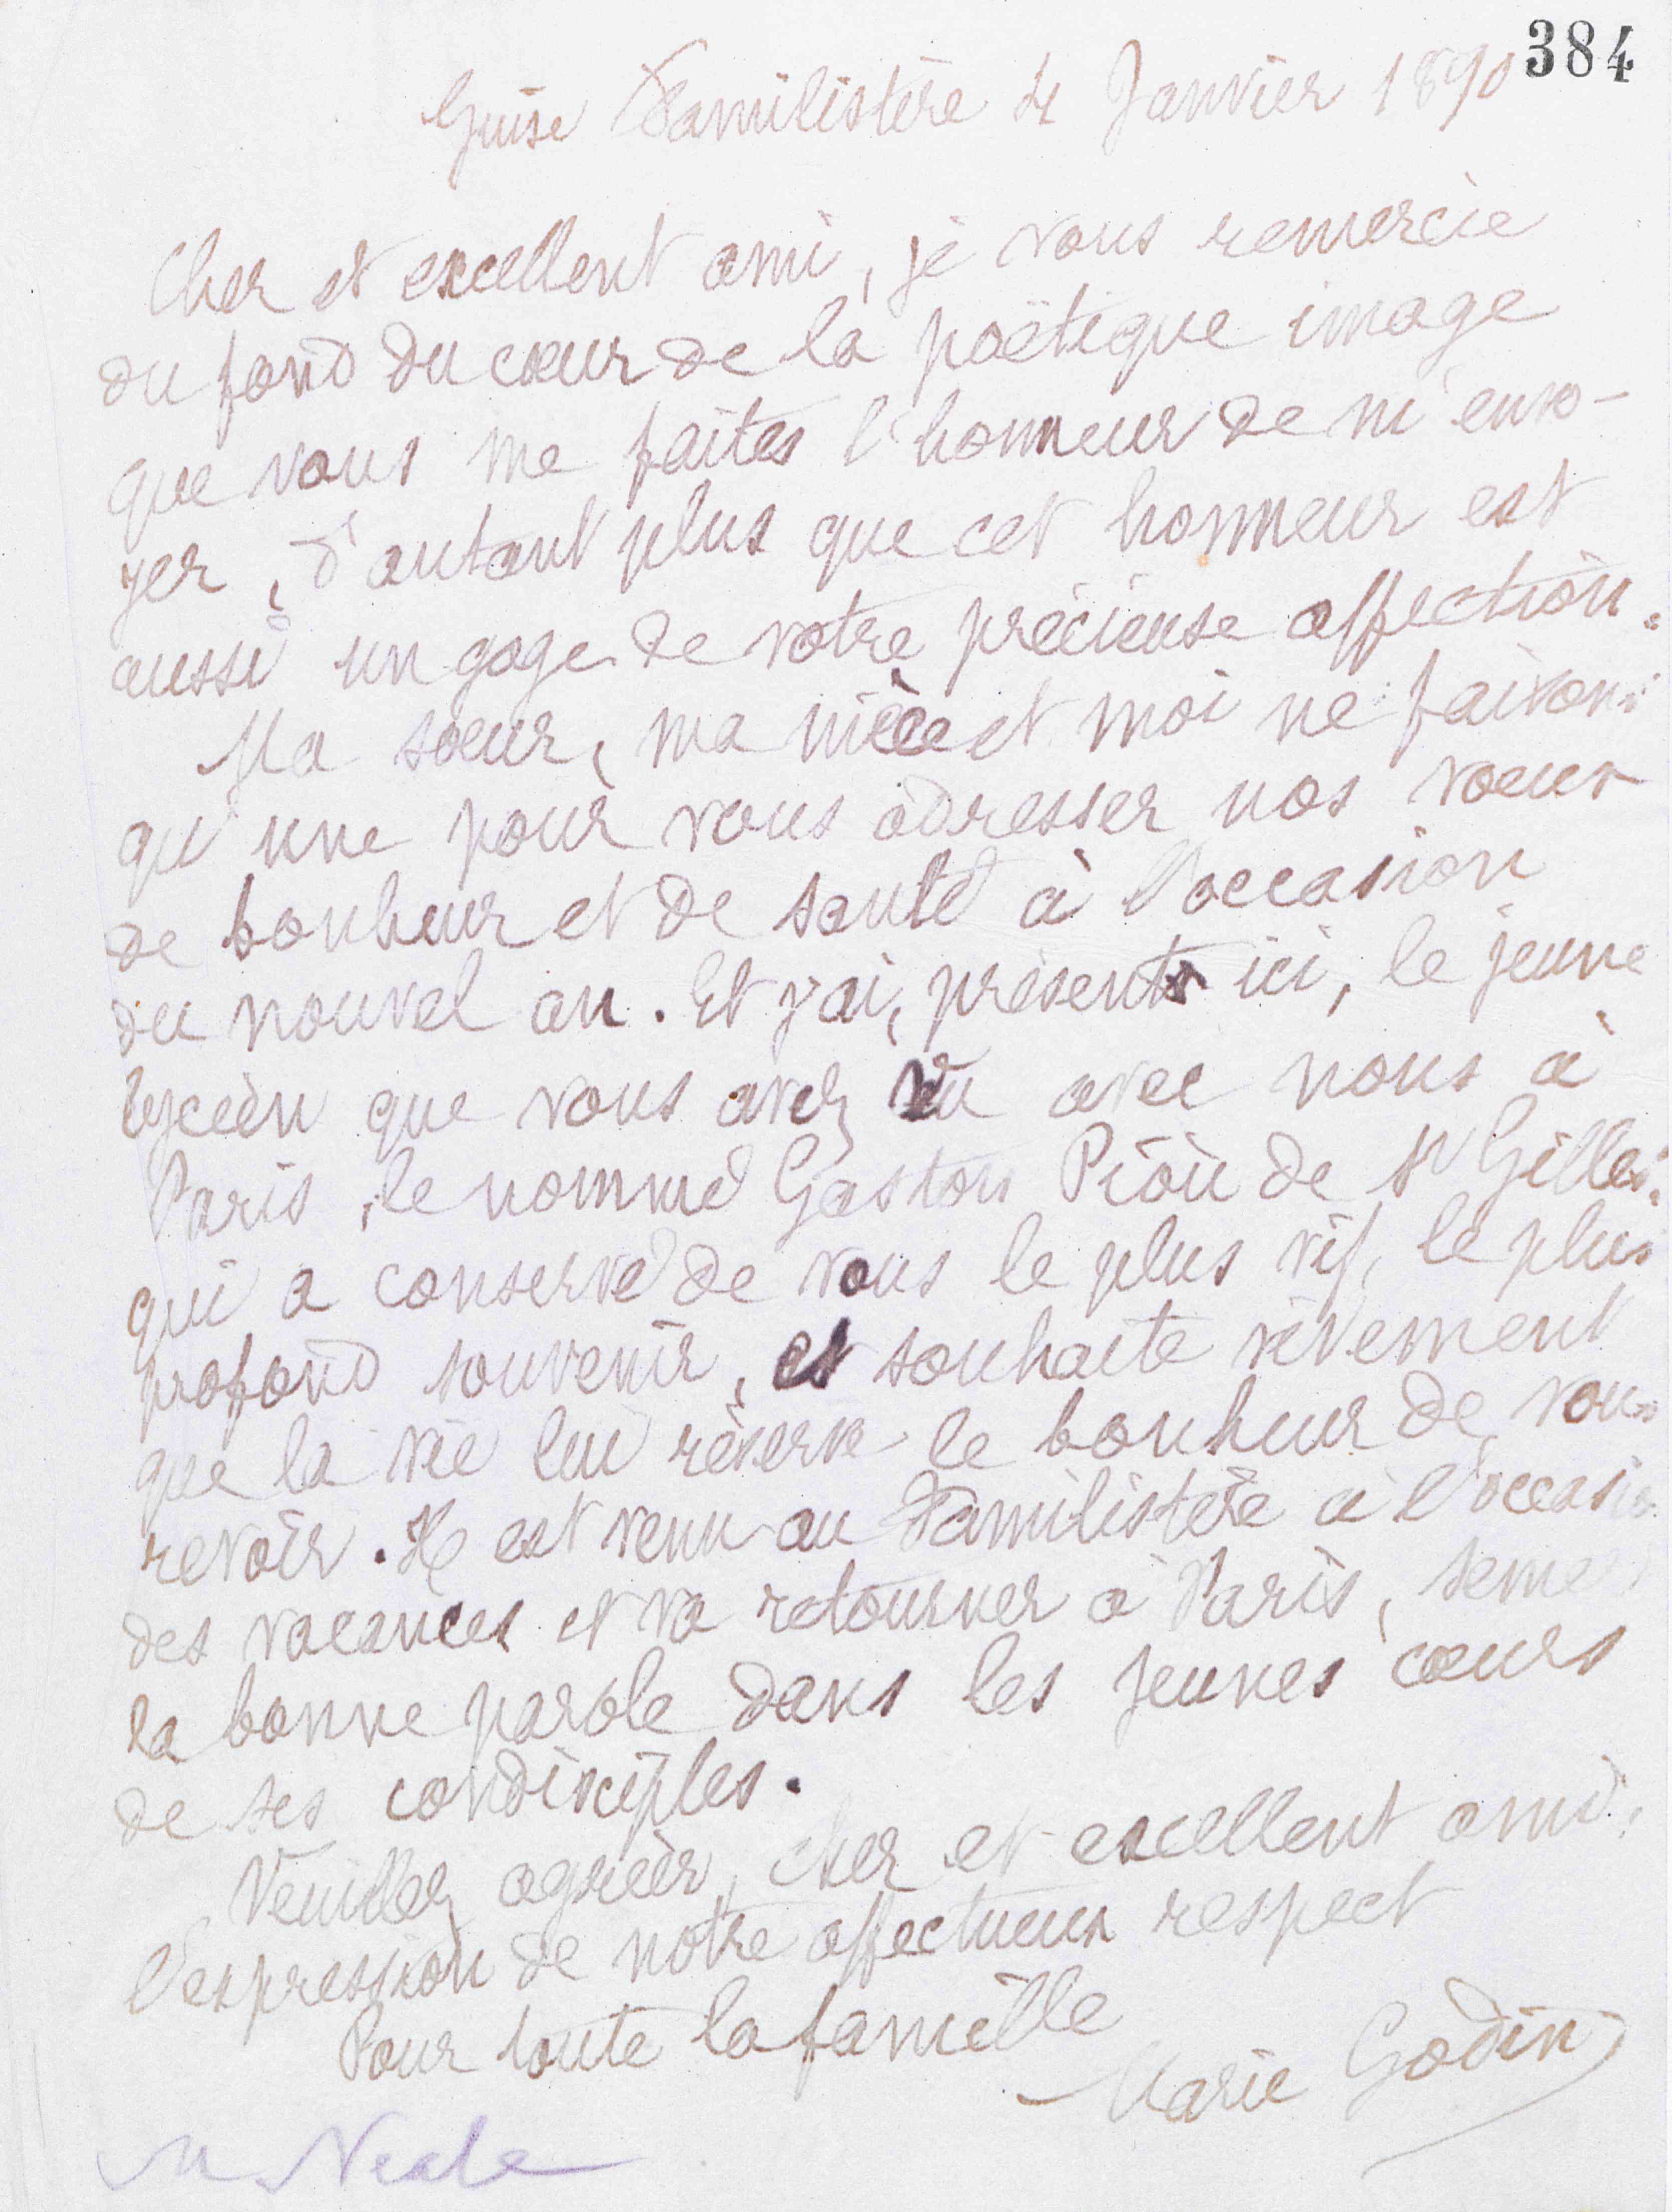 384
Guise Familistère 4 Janvier 1890
Cher et excellent ami, je vous remercie
du fond du cœur de la poëtique image
que vous me faites l'honneur de m'envo-
yer, d'autant plus que cet honneur est
aussi un gage de votre précieuse affection.
Ma sœur, ma nièce et moi ne faisons
qu'une pour vous adresser nos vœux
de bonheur et de santé à l'occasion
du nouvel an. Et j'ai, présent ici, le jeune
lycéen que vous avez vu avec nous à
Paris, le nommé Gaston Piou de St Gilles,
qui a conservé de vous le plus vif, le plus
profond souvenir, et souhaite vivement
que la vie lui réserve le bonheur de vous
revoir. Il est venu au Familistère à l'occasion
des vacances et va retourner à Paris, semer
la bonne parole dans les jeunes cœurs
de ses condisciples.
Veuillez agréer, cher et excellent ami,
l'expression de notre affectueux respect
Pour toute la famille
Marie Godin
M. Neale